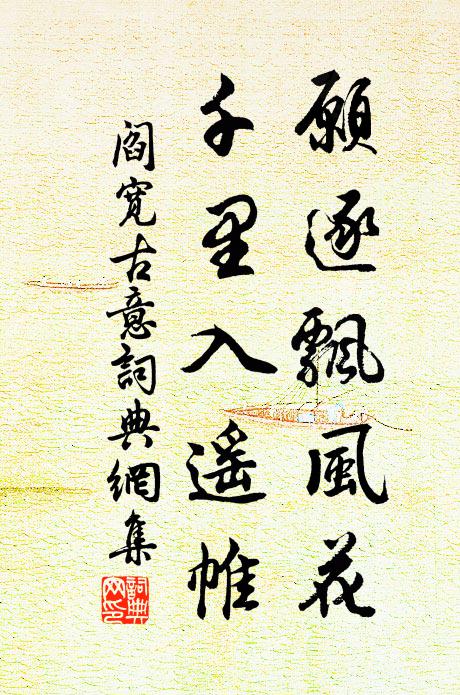 願逐飄風花
千里入遥帷
閻寬古意詞典網集
詞典
网印